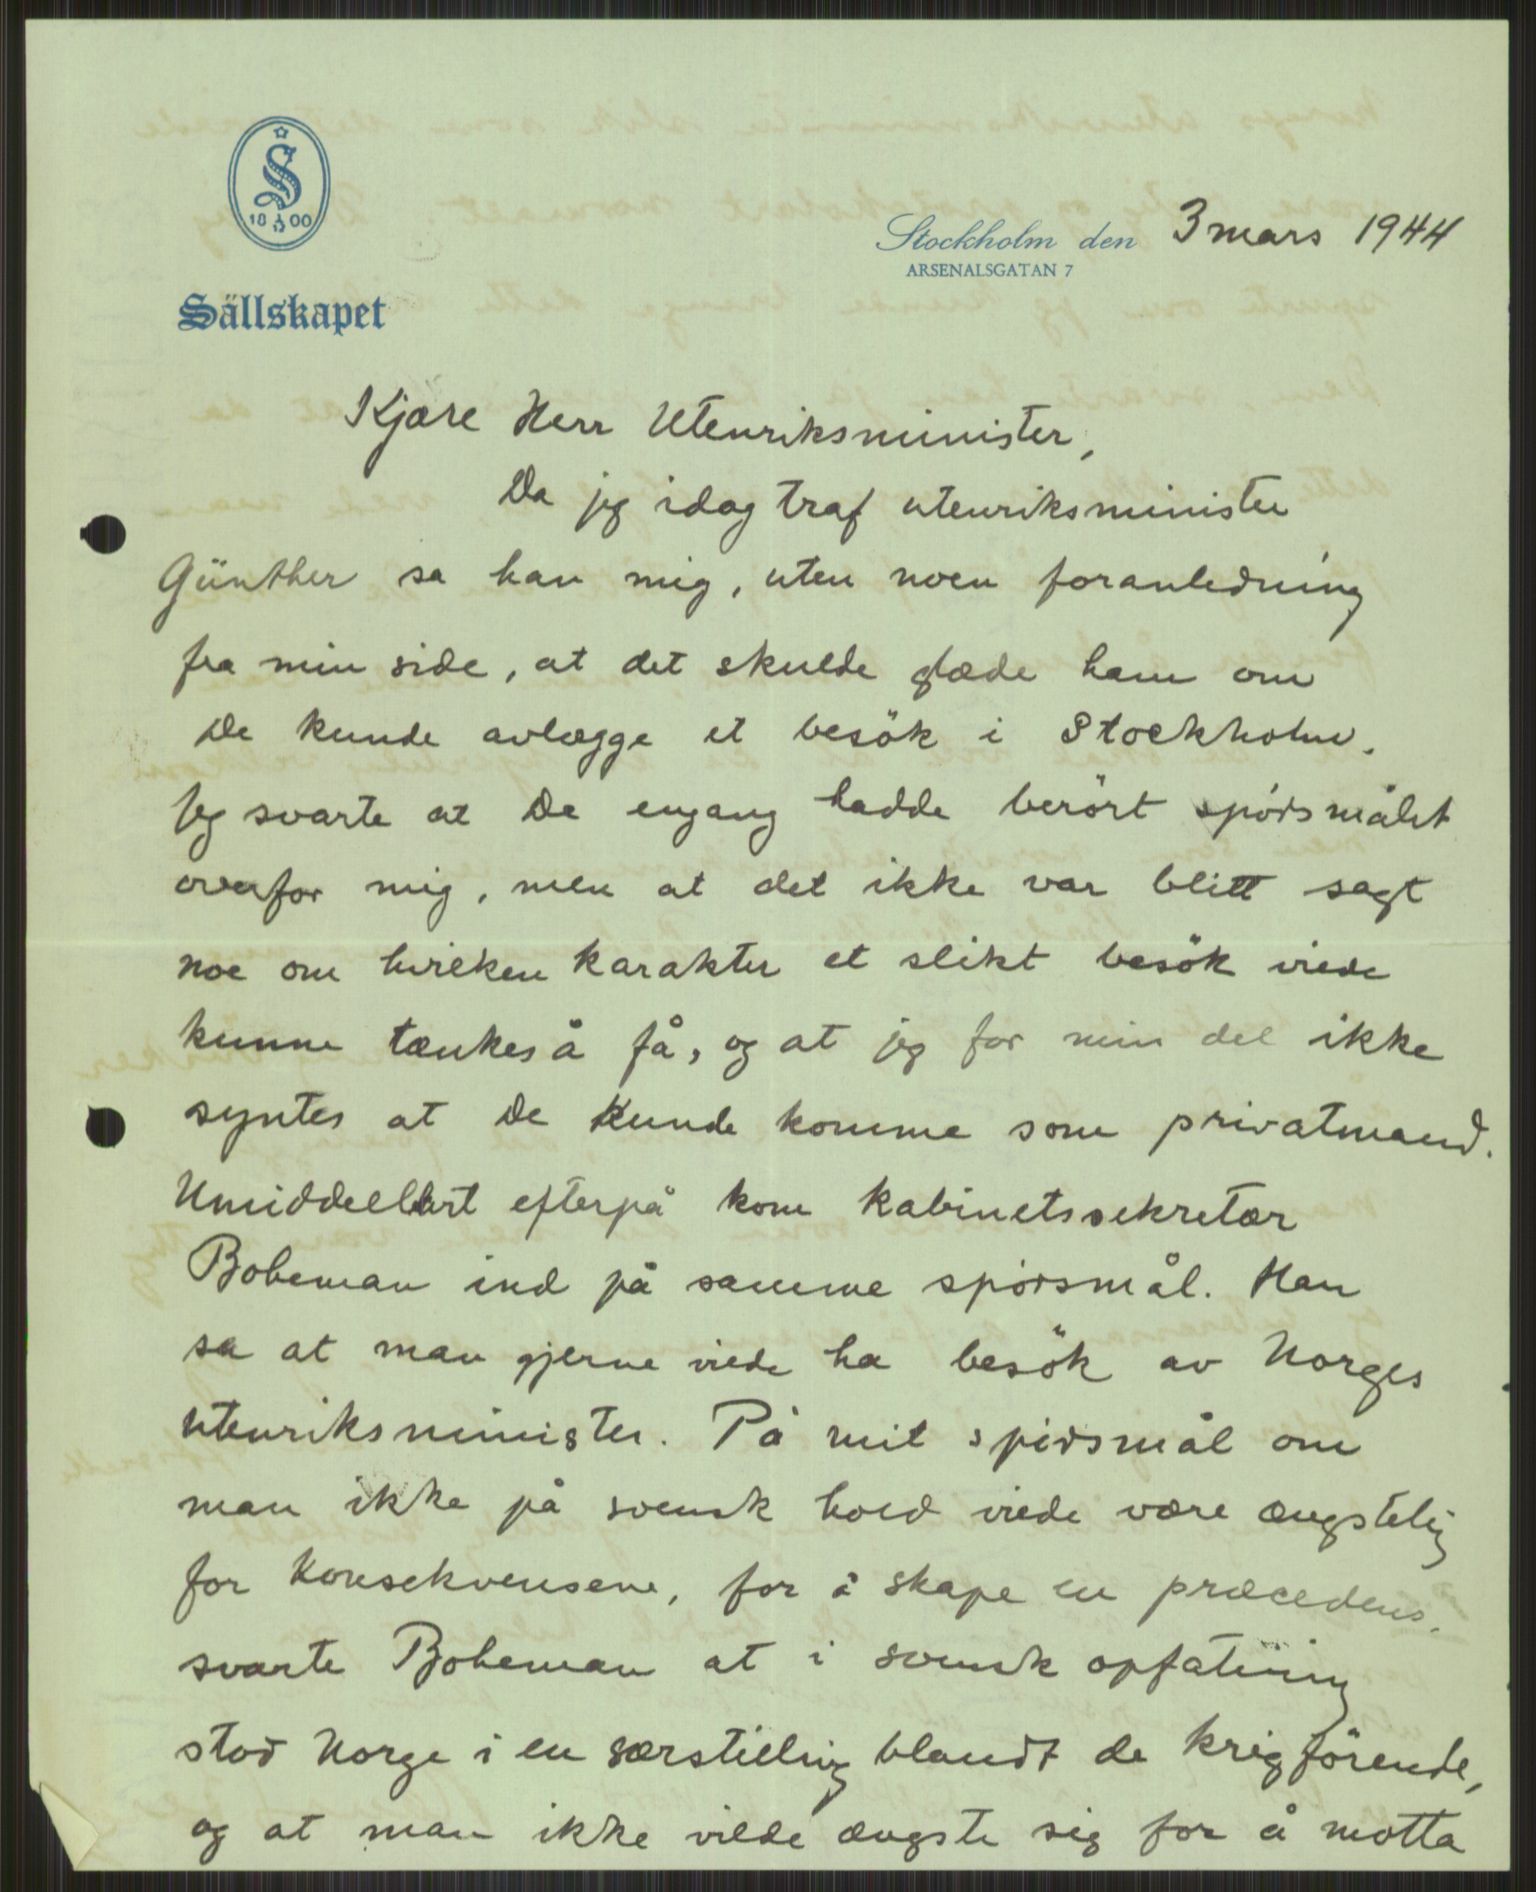 S
18 00
Sällskapet
Stockholm den 3 mars 1944
ARSENALSGATAN 7
Kjære Herr Utenriksminister,
Da jeg idag traf utenriksminister
Günther sa han mig, uten noen foranledning
fra min side, at det skulde glæde ham om
De kunde avlægge et besök i Stockholm.
Jeg svarte at De engang hadde berört spörsmålet
overfor mig, men at det ikke var blitt sagt
noe om hvilken karakter et slikt besök vilde
kunne tænkes å få, og at jeg for min del ikke
syntes at De kunde komme som privatmand.
Umiddelbart efterpå kom kabinetssekretær
Boheman ind på samme spörsmål. Han
sa at man gjerne vilde ha besök av Norges
utenriksminister. På mit spörsmål om
man ikke på svensk hold vilde være ængstelig
for konsekvensene, for å skape en præcedens,
svarte Boheman at i svensk opfatning
stod Norge i en særstilling blandt de krigförende,
og at man ikke vilde ængste sig for å motta